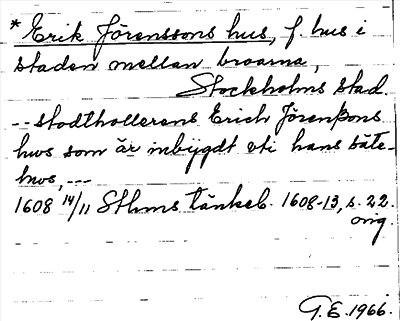 * Erik Jörenssons hus, f. hus i
staden mellan broarna,
Stockholms stad.
-- stadthollerens Erich Jörenßons
hws som är inbygdt vti hans säte-
hws, ---
1608 14/11 Sthms tänkeb. 1608-13, s. 22.
orig.
G.E. 1966.